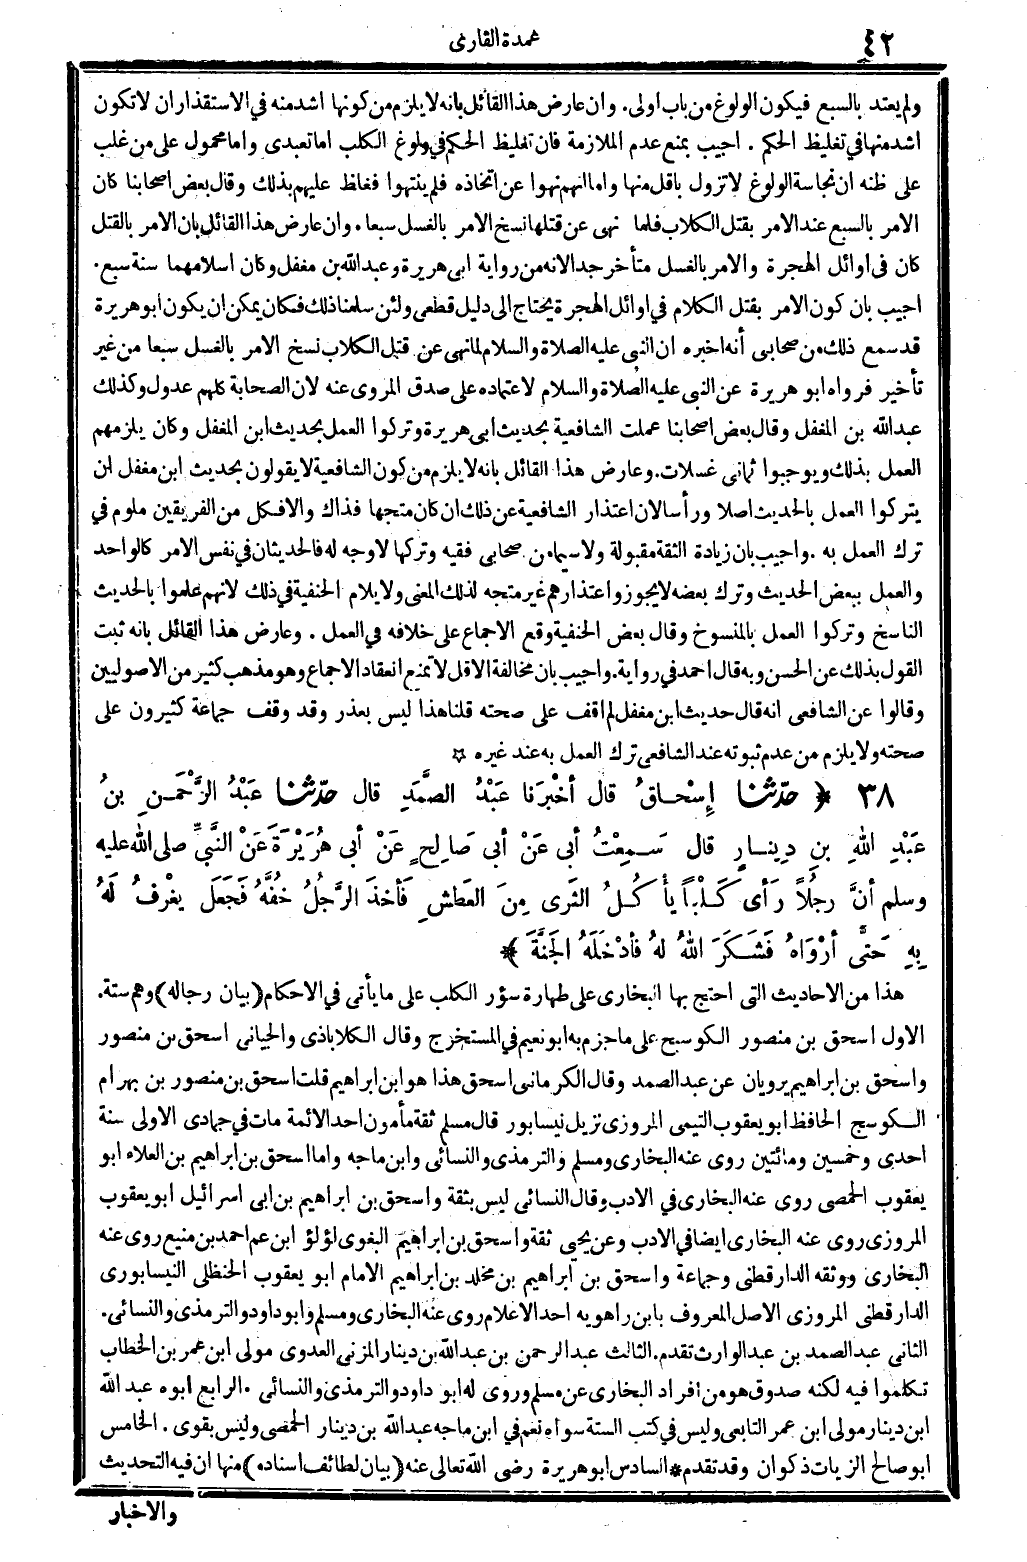 ٤٢
عمدة القارى
ولم يعتد بالسبع فيكون الولوغ من باب اولى. وان عارض هذا القائل بانه لا يلزم من كونها اشد منه فى الاستقذار ان لا تكون
اشد منها فى تغليظ الحكم . اجيب بمنع عدم الملازمة فان تغليظ الحكم فى ولوغ الكلب اما تعبدى واما محمول على من غلب
على ظنه ان نجاسة الولوغ لا تزول باقل منها واما انهم نهوا عن اتخاذه فلم ينتهوا فغلظ عليهم بذلك وقال بعض اصحابنا كان
الامر بالسبع عند الامر بقتل الكلاب فلما نهى عن قتلها نسخ الامر بالغسل سبعا. وان عارض هذا القائل بان الامر بالقتل
كان فى اوائل الهجرة والامر بالغسل متأخر جدا لانه من رواية ابى هريرة وعبد الله بن مغفل وكان اسلامهما سنة سبع.
اجيب بان كون الامر بقتل الكلام فى اوائل الهجرة يحتاج الى دليل قطعى ولئن سلمنا ذلك فكان يمكن ان يكون ابو هريرة
قد سمع ذلك من صحابى أنه اخبره ان النبى عليه الصلاة والسلام لما نهى عن قتل الكلاب نسخ الامر بالغسل سبعا من غير
تأخير فرواه ابو هريرة عن النبى عليه الصلاة والسلام لاعتماده على صدق المروى عنه لان الصحابة كلهم عدول وكذلك
عبد الله بن المغفل وقال بعض اصحابنا عملت الشافعية بحديث ابى هريرة وتركوا العمل بحديث ابن المغفل وكان يلزمهم
العمل بذلك ويوجبوا ثمانى غسلات. وعارض هذا القائل بانه لا يلزم من كون الشافعية لا يقولون بحديث ابن مغفل ان
يتركوا العمل بالحديث اصلا ورأسا لان اعتذار الشافعية عن ذلك ان كان متجها فذاك والا فكل من الفريقين ملوم فى
ترك العمل به . واجيب بان زيادة الثقة مقبولة ولا سيما من صحابى فقيه وتركها لا وجه له فالحديثان فى نفس الامر كالواحد
والعمل ببعض الحديث وترك بعضه لا يجوز واعتذارهم غير متجه لذلك المعنى ولا يلام الحنفية فى ذلك لانهم عملوا بالحديث
الناسخ وتركوا العمل بالمنسوخ وقال بعض الحنفية وقع الاجماع على خلافه فى العمل . وعارض هذا القائل بانه ثبت
القول بذلك عن الحسن وبه قال احمد فى رواية. واجيب بان مخالفة الاقل لا تمنع انعقاد الاجماع وهو مذهب كثير من الاصوليين
وقالوا عن الشافعى انه قال حديث ابن مغفل لم اقف على صحته قلنا هذا ليس بعذر وقد وقف جماعة كثيرون على
صحته ولا يلزم من عدم ثبوته عند الشافعى ترك العمل به عند غيره ✩
٣٨ ﴿ حدّثنا إِسْحاقُ قال أخْبَرَنا عَبْدُ الصَّمَدِ قال حدّثنا عَبْدُ الرَّحْمَـنِ بنُ
عَبْدِ اللهِ بنِ دِينـارٍ قال سَـمِعْتُ أبى عَنْ أبى صَالِحٍ عَنْ أبى هُرَيْرَةَ عَنْ النَّبيِّ صلى الله عليه
وسلم أنَّ رجُلاً رَأى كَـلْباً يأْكُـلُ الثَّرى مِنَ العَطَشِ فَأخَذَ الرَّجُلُ خُفَّهُ فَجَعَلَ يغْرِفُ لَهُ
بِهِ حَتَّى أرْوَاهُ فَشَـكَرَ اللهُ لهُ فأدْخَلَهُ الجَنَّةَ ﴾
هذا من الاحاديث التى احتج بها البخارى على طهارة سؤر الكلب على ما يأتى فى الاحكام (بيان رجاله) وهم ستة.
الاول اسحق بن منصور الكوسج على ما جزم به ابو نعيم فى المستخرج وقال الكلاباذى والجيانى اسحق بن منصور
واسحق بن ابراهيم يرويان عن عبد الصمد وقال الكرمانى اسحق هذا هو ابن ابراهيم قلت اسحق بن منصور بن بهرام
الكوسج الحافظ ابو يعقوب التيمى المروزى نزيل نيسابور قال مسلم ثقة مأمون احد الائمة مات فى جمادى الاولى سنة
احدى وخمسين ومائتين روى عنه البخارى ومسلم والترمذى والنسائى وابن ماجه واما اسحق بن ابراهيم بن العلاء ابو
يعقوب الحمصى روى عنه البخارى فى الادب وقال النسائى ليس بثقة واسحق بن ابراهيم بن ابى اسرائيل ابو يعقوب
المروزى روى عنه البخارى ايضا فى الادب وعن يحيى ثقة واسحق بن ابراهيم البغوى لؤلؤ ابن عم احمد بن منيع روى عنه
البخارى ووثقه الدارقطنى وجماعة واسحق بن ابراهيم بن مخلد بن ابراهيم الامام ابو يعقوب الحنظلى النيسابورى
الدارقطنى المروزى الاصل المعروف بابن راهويه احد الاعلام روى عنه البخارى ومسلم وابو داود والترمذى والنسائى.
الثانى عبد الصمد بن عبد الوارث تقدم. الثالث عبد الرحمن بن عبد الله بن دينار المزنى العدوى مولى ابن عمر بن الخطاب
تكلموا فيه لكنه صدوق هو من افراد البخارى عن مسلم وروى له ابو داود والترمذى والنسائى . الرابع ابوه عبد الله
ابن دينار مولى ابن عمر التابعى وليس فى كتب الستة سواه نعم فى ابن ماجه عبد الله بن دينار الحمصى وليس بقوى . الخامس
ابو صالح الزيات ذكوان وقد تقدم * السادس ابو هريرة رضى الله تعالى عنه (بيان لطائف اسناده) منها ان فيه التحديث
والاخبار